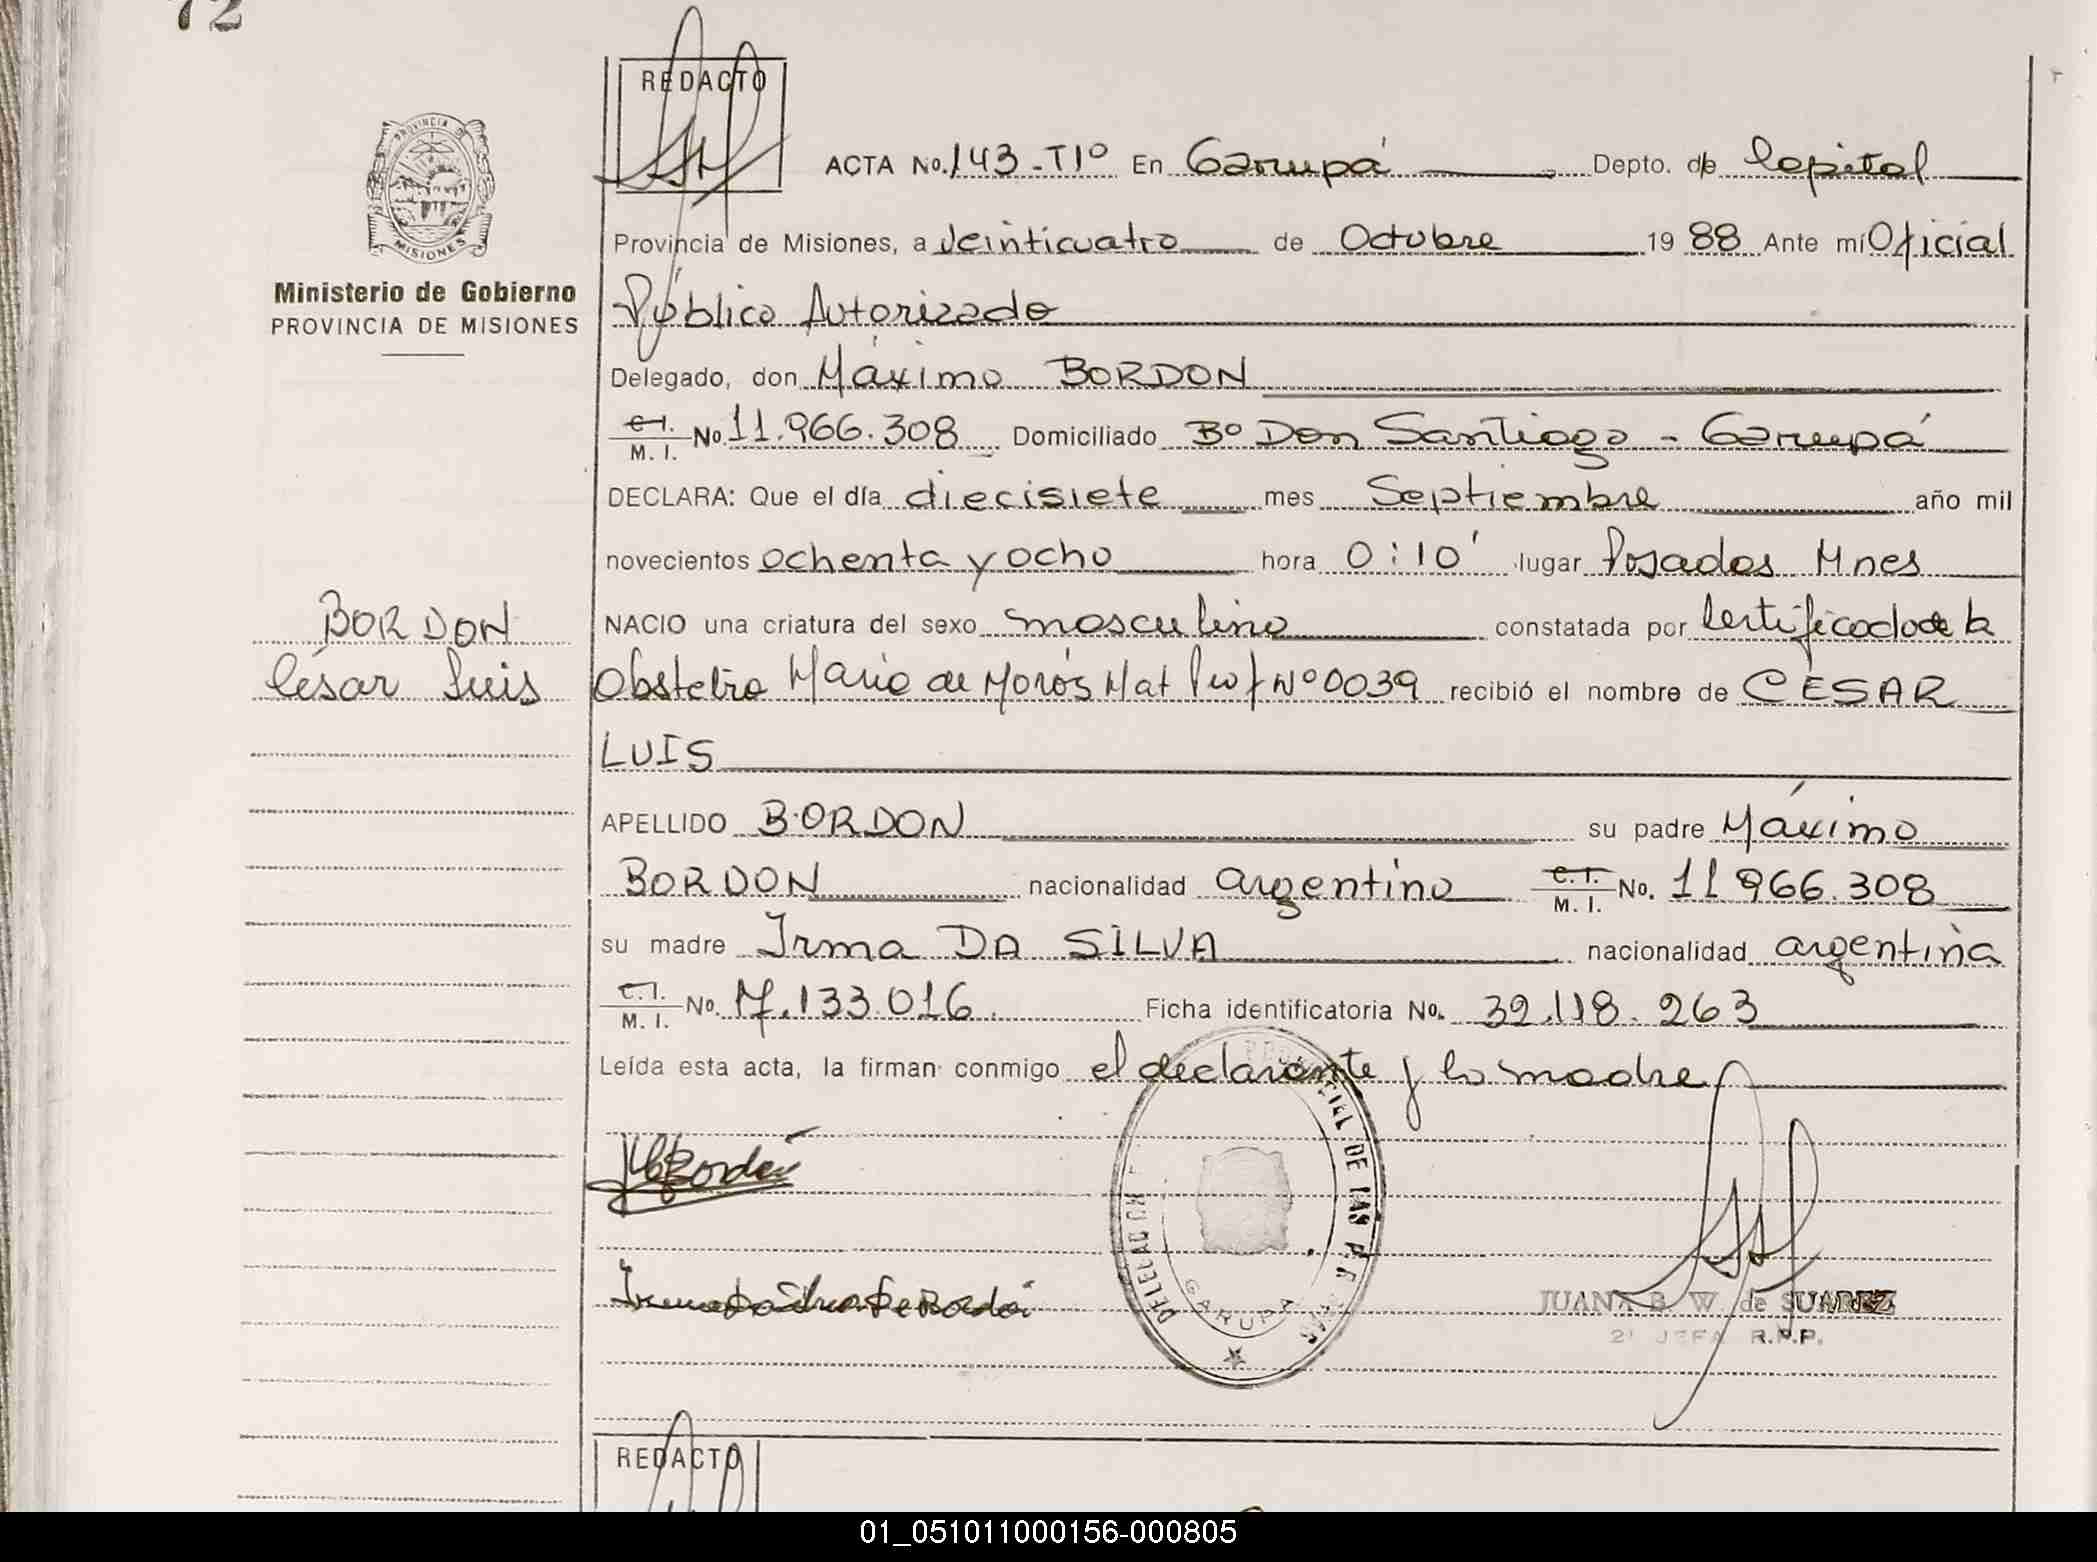 72
REDACTO
PROVINCIA DE
MISIONES
Ministerio de Gobierno
PROVINCIA DE MISIONES
ACTA No. 143-T1º En Garupá Depto. de Capital
Provincia de Misiones, a Veinticuatro de Octubre 19 88 Ante mí Oficial
Público Autorizado
Delegado, don Máximo BORDON
C.I. M.I. No. 11.966.308 Domiciliado Bº Don Santiago - Garupá
DECLARA: Que el día diecisiete mes Septiembre año mil
novecientos ochenta y ocho hora 0:10' lugar Posadas Mnes
BORDON
César Luis
NACIO una criatura del sexo masculino constatada por Certificado de la
Obstetra María de Morós Mat Prof Nº 0039 recibió el nombre de CÉSAR
LUIS
APELLIDO BORDON su padre Máximo
BORDON nacionalidad argentino C.I. M.I. No. 11966.308
su madre Irma DA SILVA nacionalidad argentina
C.I. M.I. No. 17.133.016. Ficha identificatoria No. 32.118.263
Leída esta acta, la firman conmigo el declarante y la madre
Bordón
Irma Da Silva De Bordón
PROVINCIAL DE LAS
GARUPA
JUANA B. W. de SUAREZ
2ª JEFA R.P.P.
REDACTO
01_051011000156-000805